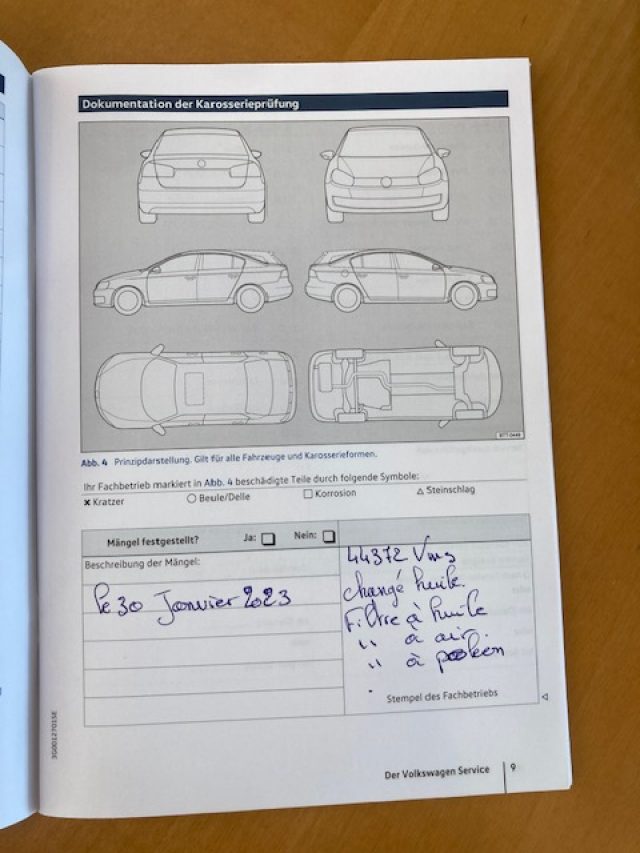 Dokumentation der Karosserieprüfung
BTT-0449
Abb. 4 Prinzipdarstellung. Gilt für alle Fahrzeuge und Karosserieformen.
Ihr Fachbetrieb markiert in Abb. 4 beschädigte Teile durch folgende Symbole:
✖ Kratzer ○ Beule/Delle □ Korrosion △ Steinschlag
Mängel festgestellt? Ja: Nein:
Beschreibung der Mängel:
le 30 Janvier 2023
44372
changé huile.
Filtre à huile
" à air
" à pollen
Stempel des Fachbetriebs
3G0012701SE
Der Volkswagen Service 9